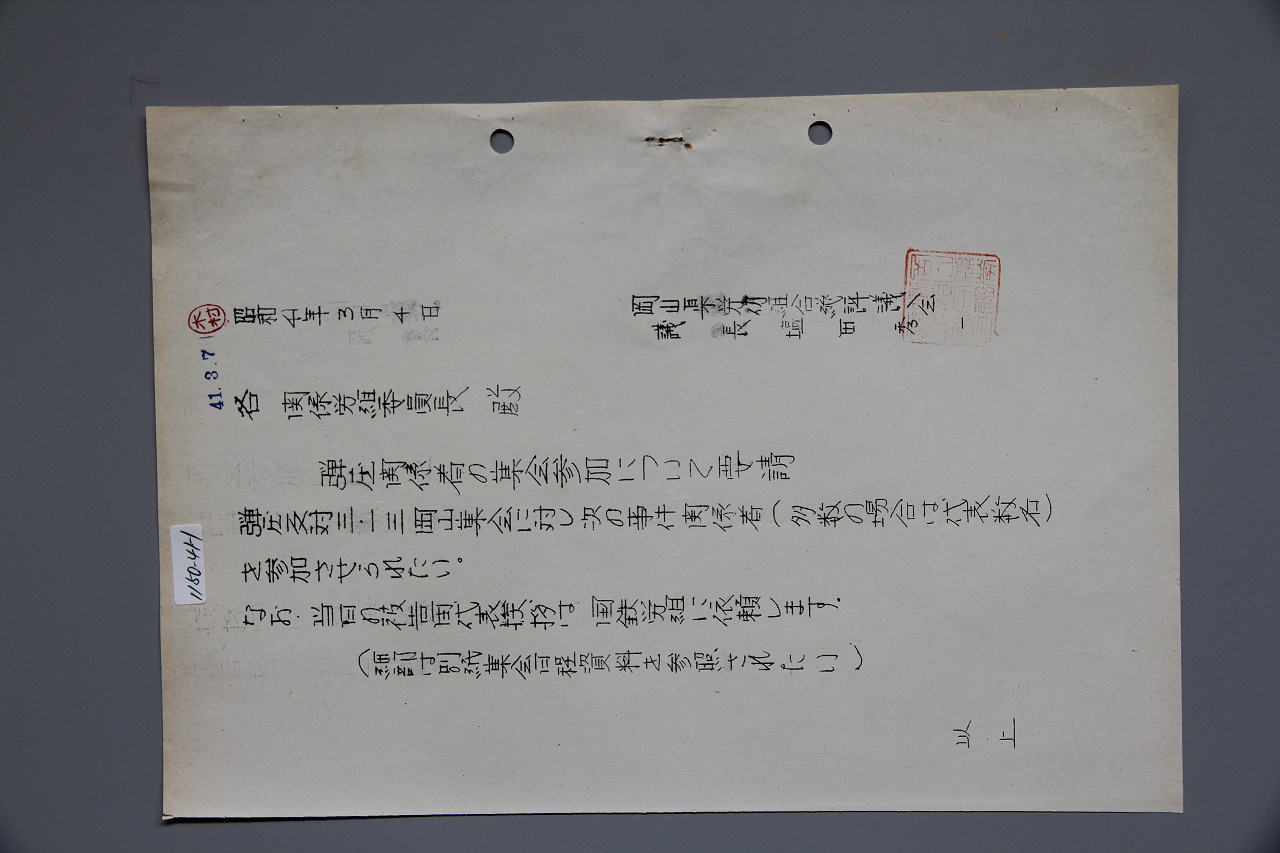 昭和41年3月4日
木村
41.3.7
岡山県労働組合総評議会
議長 塩田秀一
各関係労組委員長 殿
弾圧関係者の集会参加について要請
弾圧反対三・一三岡山集会に対し次の事件関係者（多数の場合は代表数名）
を参加させられたい。
なお、当日の被告団代表挨拶は国鉄労組に依頼します。
（細部は別紙集会日程資料を参照されたい）
以上
1150-44-1